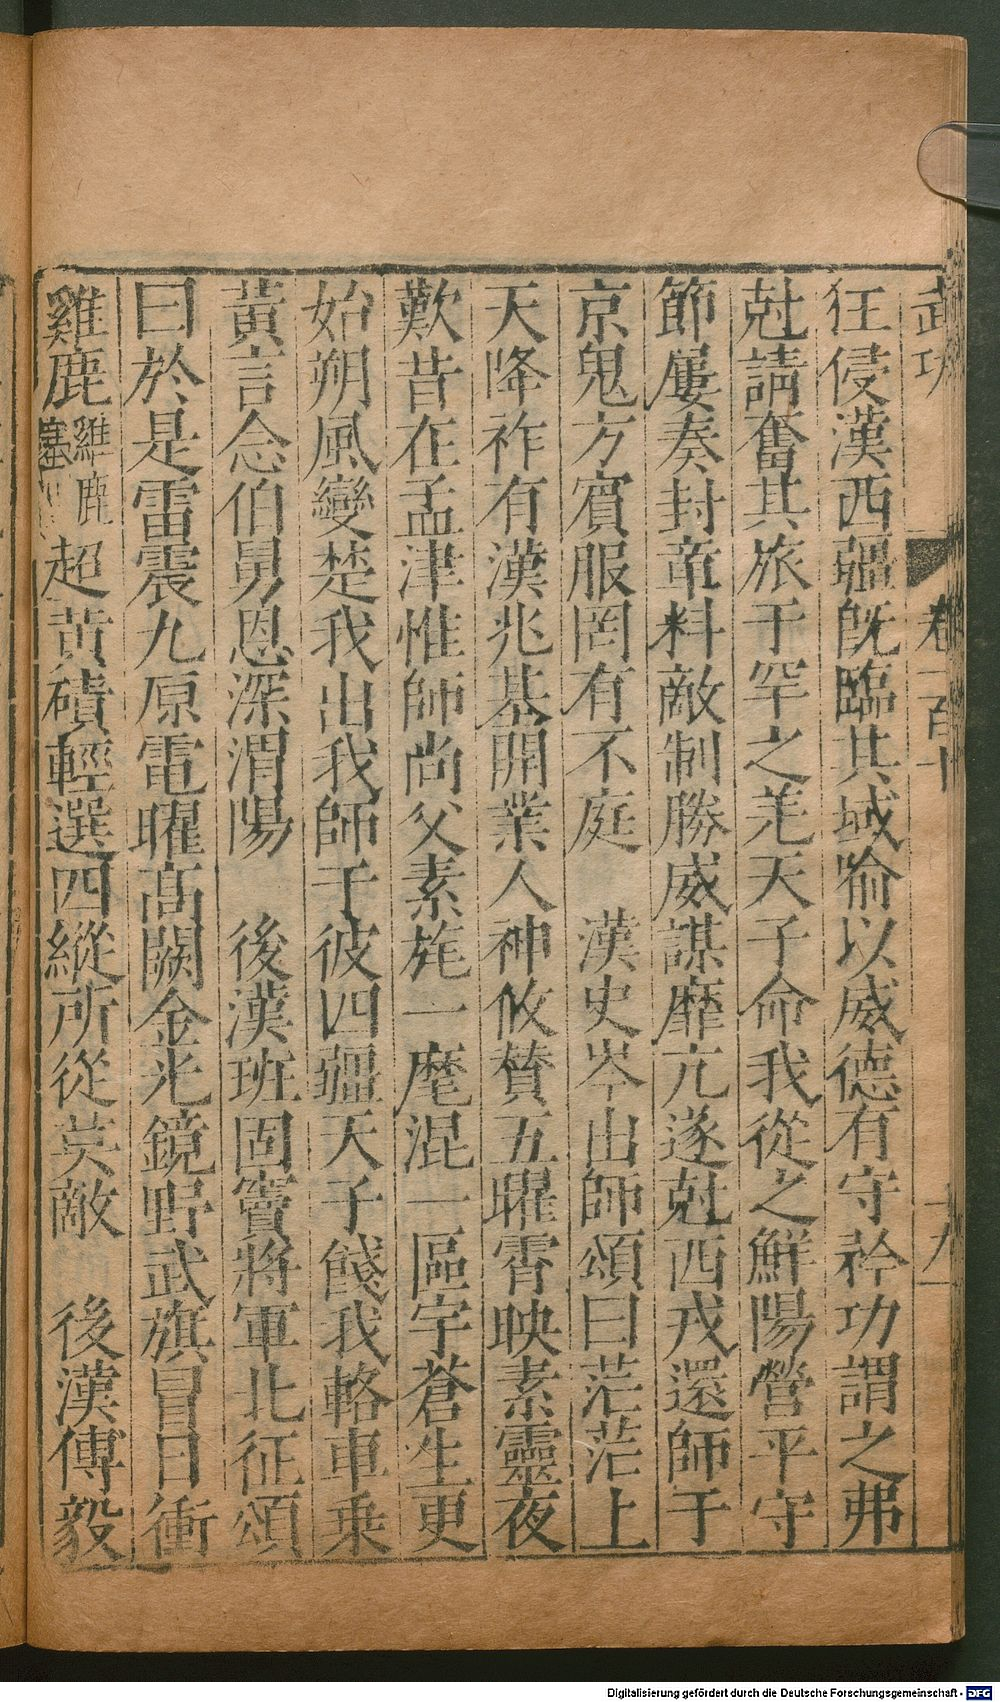 武功 卷一百十 十九
狂侵漢西疆旣臨其域喻以威德有守矜功謂之弗
尅請奮其旅于罕之羌天子命我從之鮮陽營平守
節屢奏封章料敵制勝威謀靡亢遂尅西戎還師于
京鬼方賔服罔有不庭 漢史岑出師頌曰茫茫上
天降祚有漢兆基開業人神攸贊五曜霄映素靈夜
歎昔在孟津惟師尚父素旄一麾混一區宇蒼生更
始朔風變楚我出我師于彼四疆天子餞我輅車乘
黃言念伯舅恩深渭陽 後漢班固竇將軍北征頌
曰於是雷震九原電曜高闕金光鏡野武旗冐日衝
雞鹿雞鹿塞 超黃磧輕選四縱所從莫敵 後漢傅毅
Digitalisierung gefördert durch die Deutsche Forschungsgemeinschaft - DFG